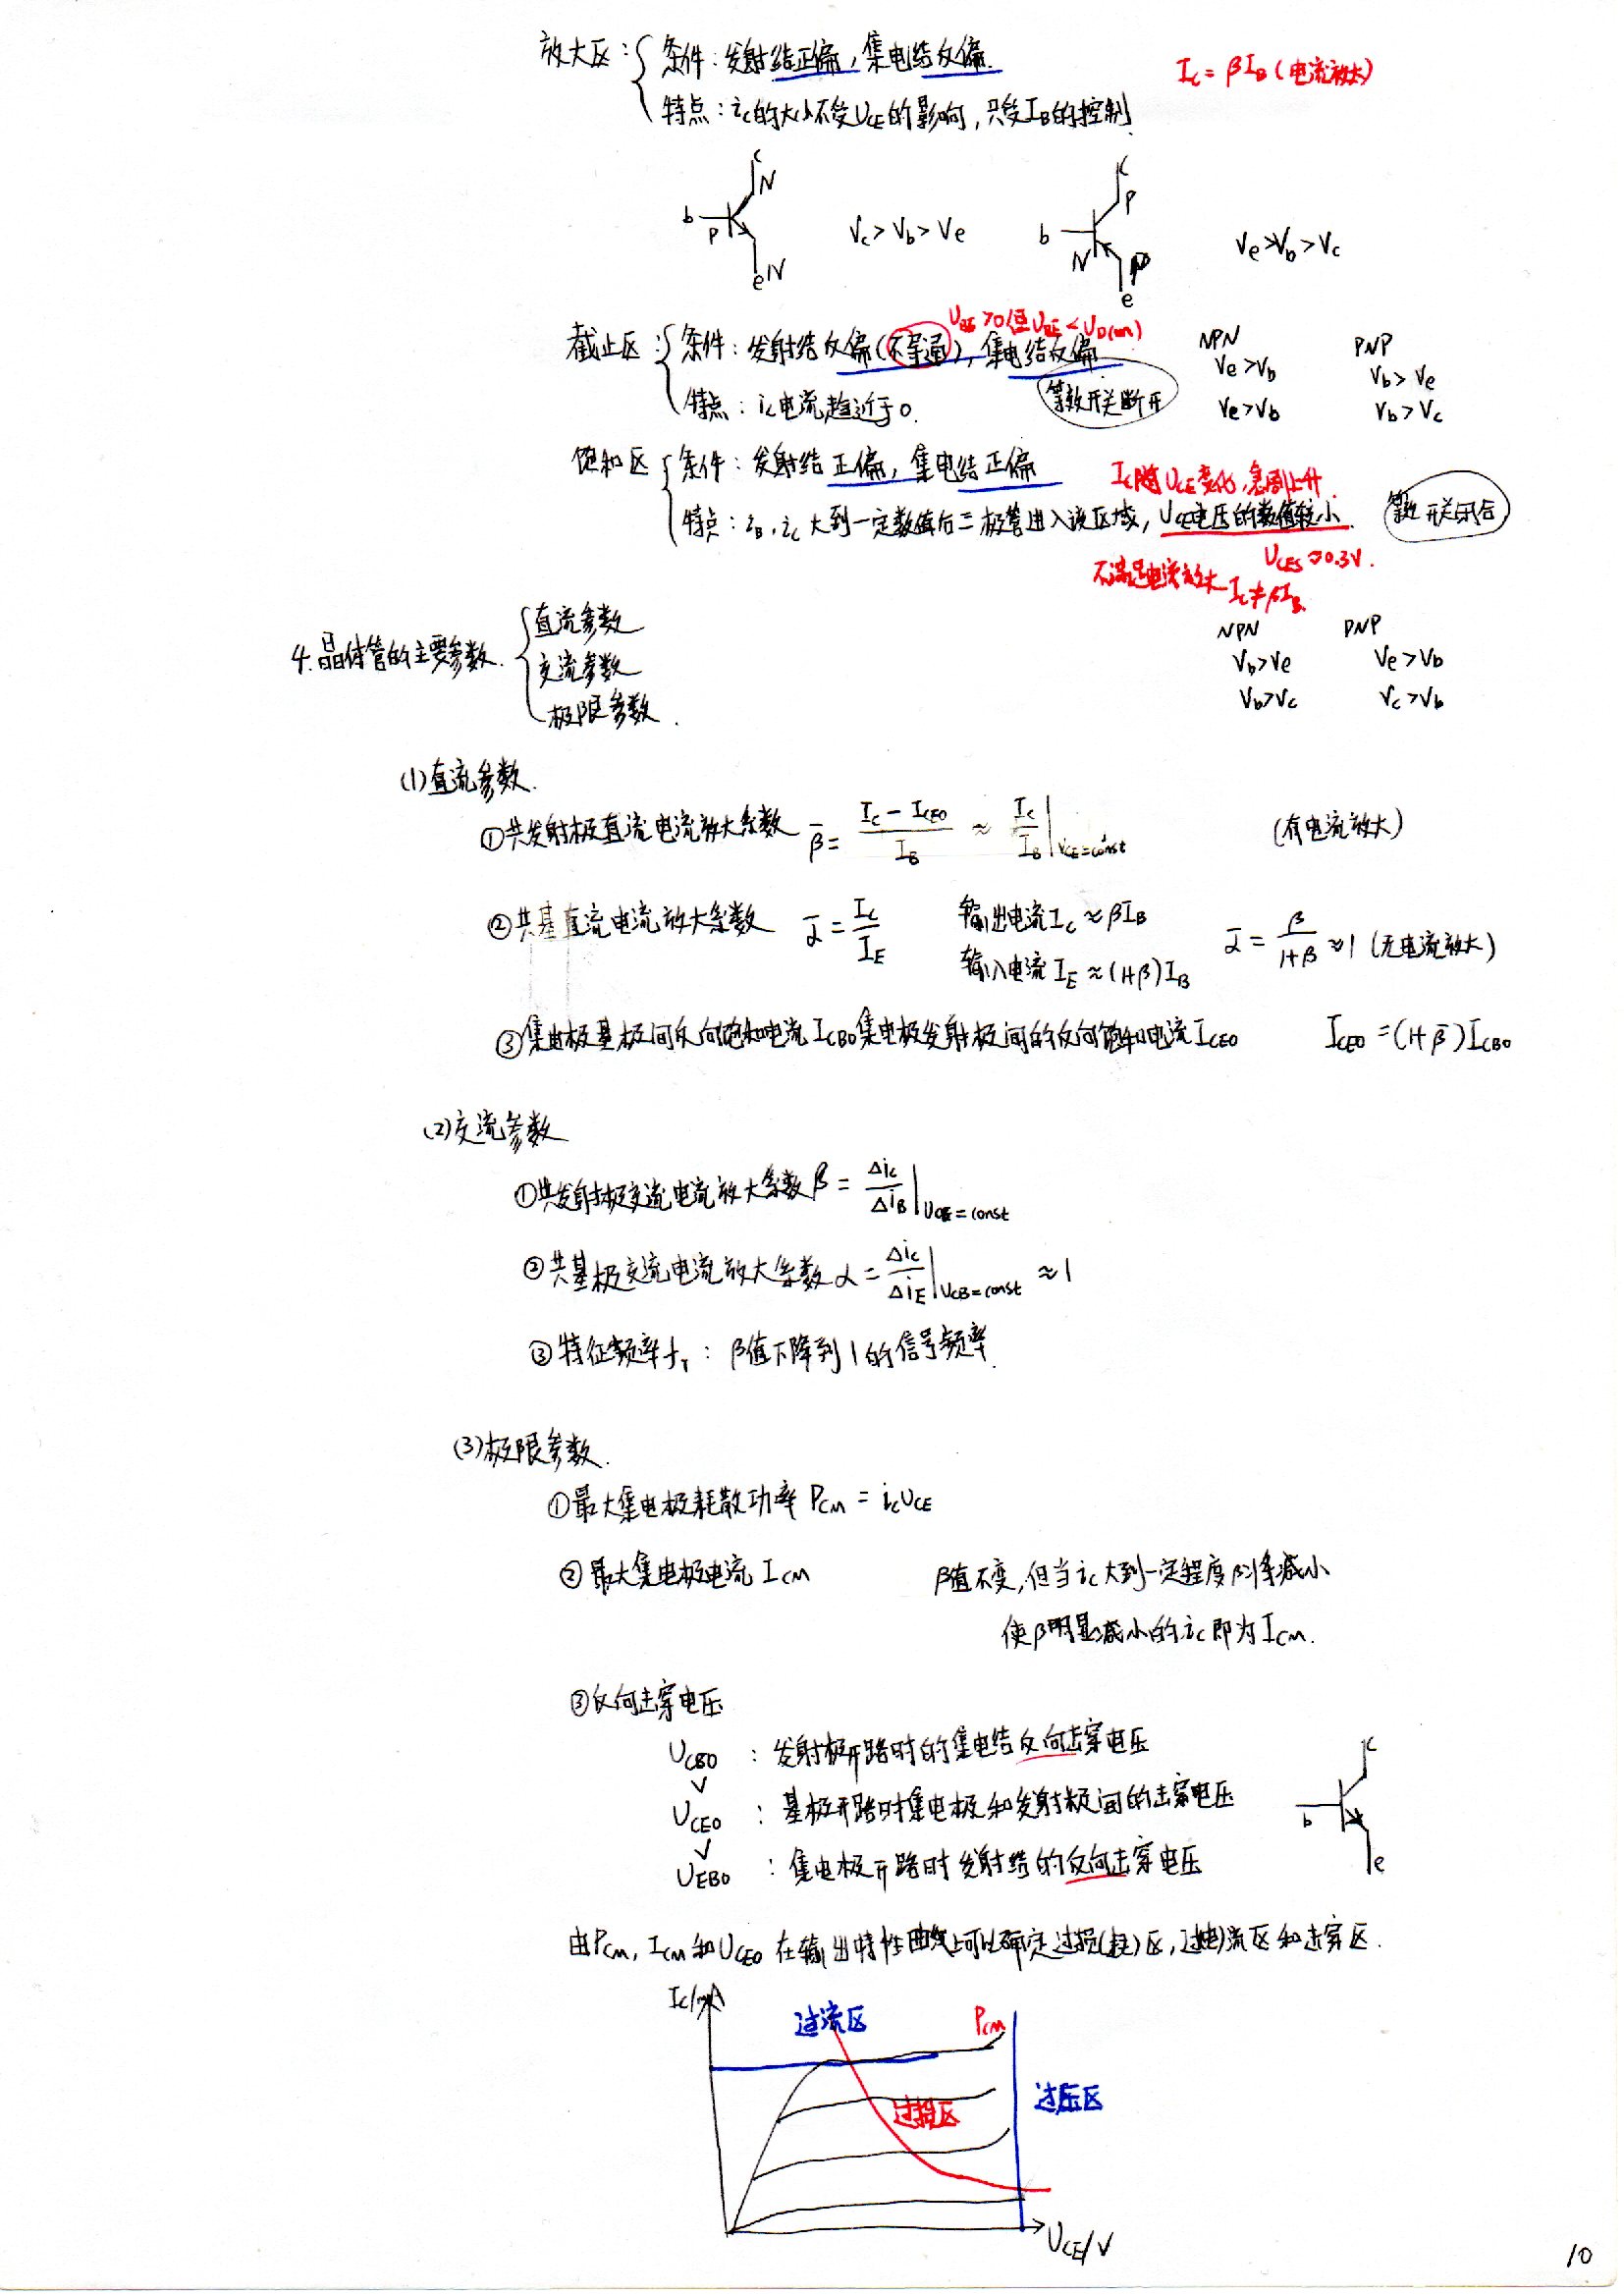 放大区：条件：发射结正偏，集电结反偏.
I_C = βI_B (电流放大)
特点：i_C的大小不受U_CE的影响，只受I_B的控制
c
N
b
P
e N
V_c > V_b > V_e
c
P
b
N
P
e
V_e > V_b > V_c
U_BE > 0 但 U_BE < U_D(on)
截止区：条件：发射结反偏(不导通)，集电结反偏
NPN PNP
V_e > V_b V_b > V_e
特点：i_C电流趋近于0.
等效开关断开
V_e > V_b V_b > V_c
饱和区 条件：发射结正偏，集电结正偏
I_C随U_CE变化，急剧上升.
特点：i_B, i_C 大到一定数值后三极管进入该区域，U_CE电压的数值较小.
等效开关闭合
U_CES ≈ 0.3V.
不满足电流放大 I_C ≠ βI_B
NPN PNP
V_b > V_e V_e > V_b
V_b > V_c V_c > V_b
4.晶体管的主要参数.
直流参数
交流参数
极限参数.
(1)直流参数.
①共发射极直流电流放大系数 β̄ = (I_C - I_CEO)/I_B ≈ I_C/I_B |V_CE=const (有电流放大)
②共基直流电流放大系数 ᾱ = I_C/I_E 输出电流I_C ≈ βI_B
输入电流 I_E ≈ (1+β)I_B
ᾱ = β/(1+β) ≈ 1 (无电流放大)
③集电极基极间反向饱和电流I_CBO集电极发射极间的反向饱和电流I_CEO I_CEO = (1+β̄)I_CBO
(2)交流参数
①共发射极交流电流放大系数 β = Δi_C/Δi_B |U_CE=const
②共基极交流电流放大系数 α = Δi_C/Δi_E |U_CB=const ≈ 1
③特征频率f_T：β值下降到1的信号频率.
(3)极限参数.
①最大集电极耗散功率 P_CM = i_C U_CE
②最大集电极电流 I_CM β值不变，但当i_C大到一定程度β将减小
使β明显减小的i_C即为I_CM.
③反向击穿电压
U_CBO：发射极开路时的集电结反向击穿电压
∨
U_CEO：基极开路时集电极和发射极间的击穿电压
∨
U_EBO：集电极开路时发射结的反向击穿电压
c
b
e
由P_CM, I_CM和U_CEO在输出特性曲线上可以确定过损(耗)区，过(电)流区和击穿区.
I_C/mA
过流区
P_CM
过损区
过压区
U_CE/V
10